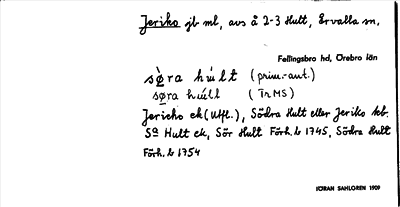 Jeriko jb ml, avs å 2-3 Hult, Ervalla sn,
Fellingsbro hd, Örebro län
sø̀ra húlt (prim.-ant.)
sø̀ra húll (TrMS)
Jericho ek (Utfl.), Södra Hult eller Jeriko kb.
Sa Hult ek, Sör Hult Förh. b 1745, Södra Hult
Förh. b 1754
JÖRAN SAHLGREN 1909